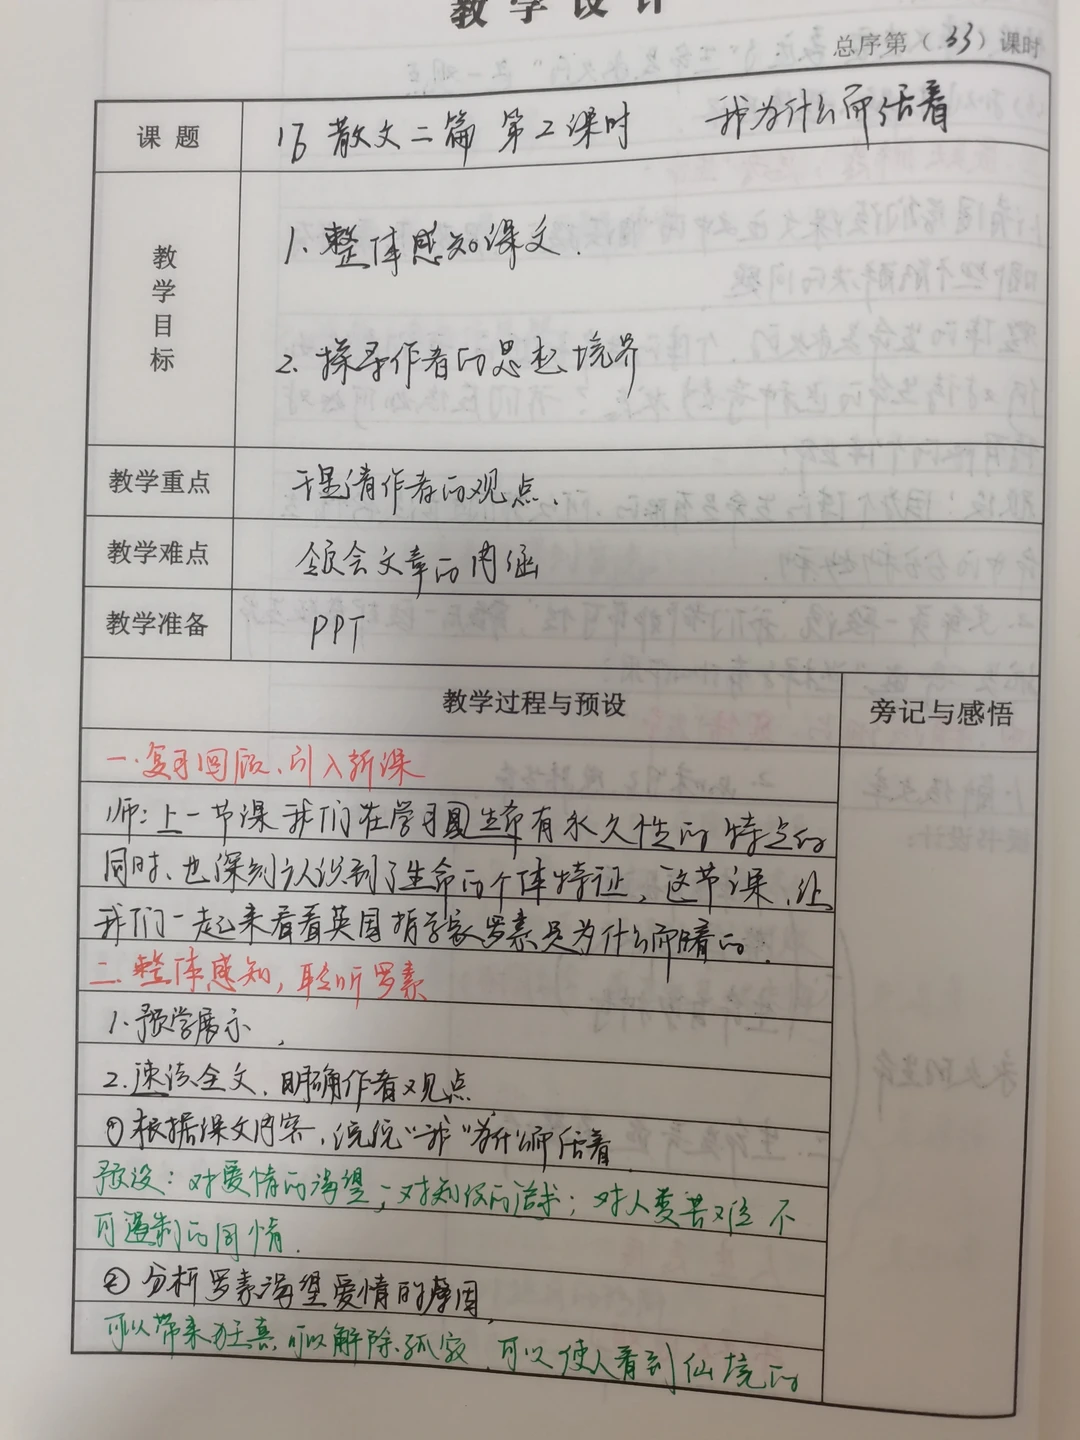 教学设计
总序第（33）课时
课题 16 散文二篇 第2课时 我为什么而活着
教学目标
1. 整体感知课文.
2. 探寻作者的思想境界
教学重点 理清作者的观点.
教学难点 领会文章的内涵
教学准备 PPT
教学过程与预设 旁记与感悟
一.复习回顾、引入新课
师:上一节课我们在学习生命有永久性的特点的
同时、也深刻认识到了生命的个体特征，这节课，让
我们一起来看看英国哲学家罗素是为什么而活着的.
二.整体感知，聆听罗素
1.预学展示，
2.速读全文、明确作者观点
①根据课文内容，说说“我”为什么而活着
预设：对爱情的渴望；对知识的追求；对人类苦难不
可遏制的同情.
②分析罗素渴望爱情的原因
可以带来狂喜,可以解除孤寂，可以使人看到仙境的